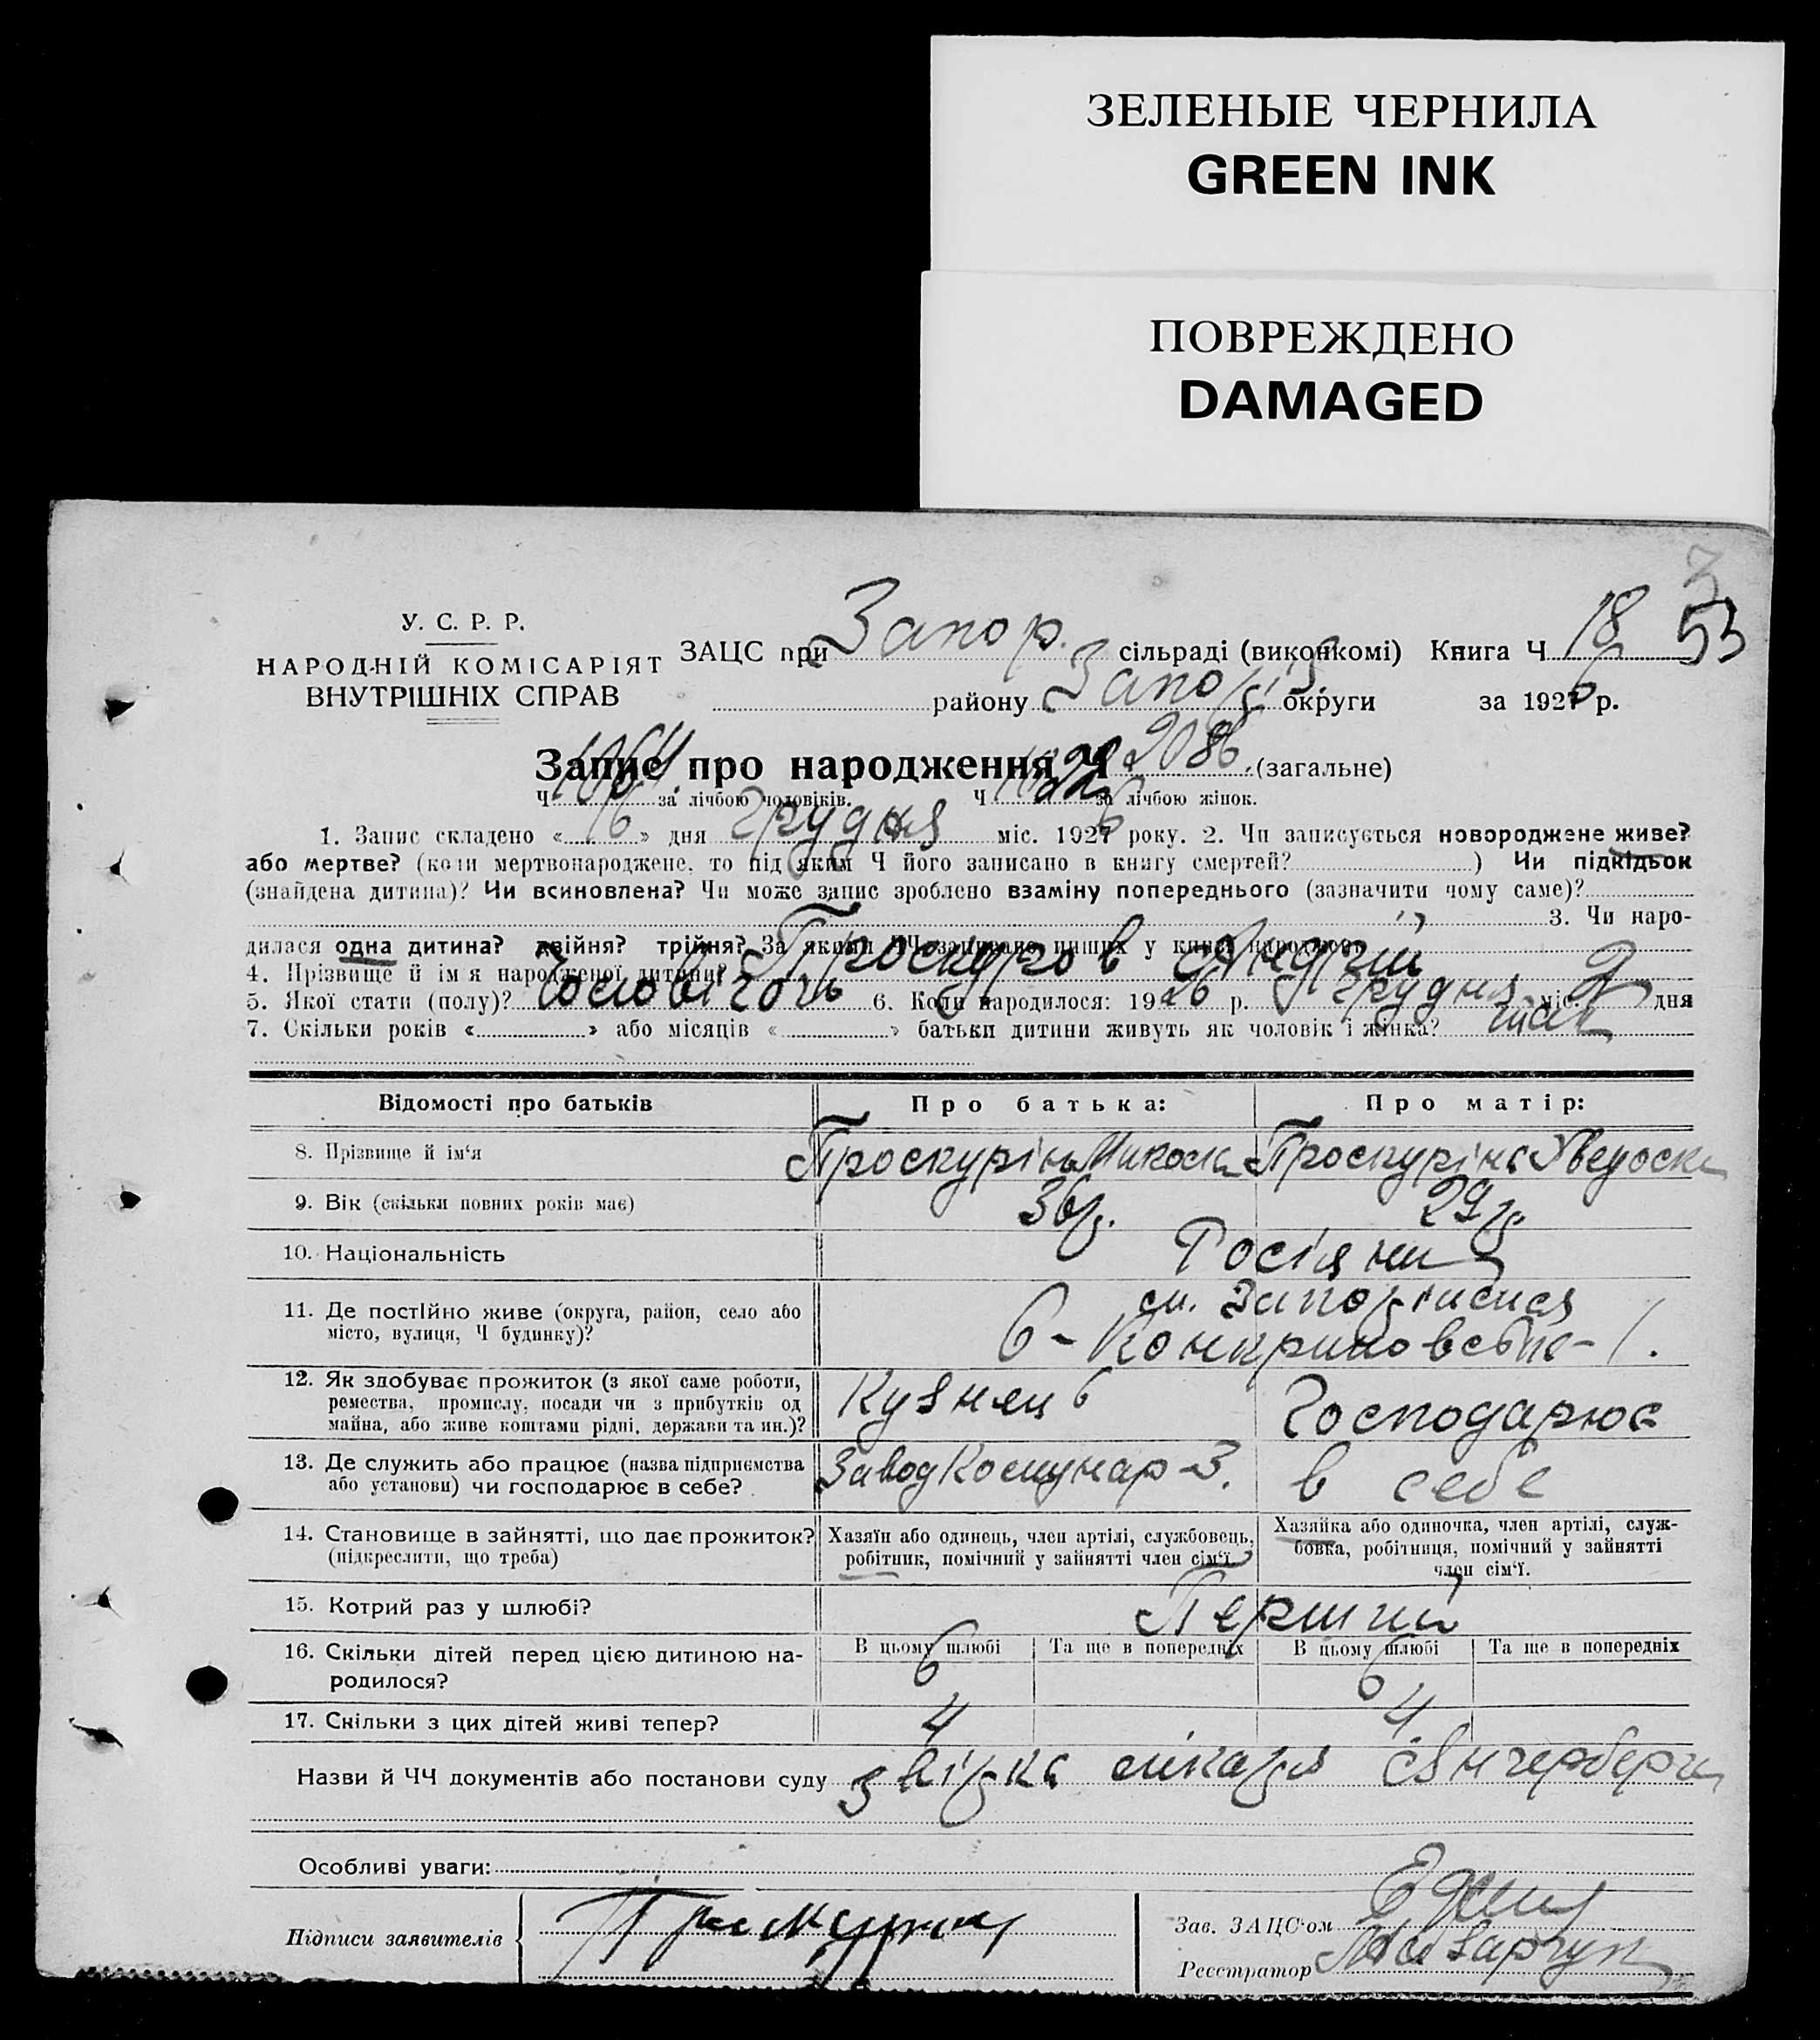 ЗЕЛЕНЫЕ ЧЕРНИЛА
GREEN INK
ПОВРЕЖДЕНО
DAMAGED
3
У. С. Р. Р.
НАРОДНІЙ КОМІСАРІЯТ
ВНУТРІШНІХ СПРАВ
ЗАЦС при Запор. сільраді (виконкомі) Книга Ч 18 53
району Запоріз. округи за 1926 р.
Запис про народження Ч 2086 (загальне)
Ч 1064 за лічбою чоловіків. Ч за лічбою жінок.
1. Запис складено « 16 » дня Грудня міс. 1926 року. 2. Чи записується новороджене живе?
або мертве? (коли мертвонароджене, то під яким Ч його записано в книгу смертей? ) Чи підкідьок
(знайдена дитина)? Чи всиновлена? Чи може запис зроблено взаміну попереднього (зазначити чому саме)?
3. Чи наро-
дилася одна дитина? двійня? трійня? За якими ЧЧ записано инших у книзі народжень
4. Прізвище й ім я народженої дитини? Проскуров Андрій
5. Якої стати (полу)? Чоловічоь 6. Коли народилося: 1926 р. Грудня міс. 2 дня
7. Скільки років « » або місяців « » батьки дитини живуть як чоловік і жінка? так
Відомості про батьків Про батька: Про матір:
8. Прізвище й ім‘я Проскурін Микола Проскуріна
9. Вік (скільки повних років має) 36р. 29р.
10. Національність Росіяни
11. Де постійно живе (округа, район, село або м. Запоріжжя
місто, вулиця, Ч будинку)? 6-
12. Як здобуває прожиток (з якої саме роботи, Кузнець Господарює
ремества, промислу, посади чи з прибутків од
майна, або живе коштами рідні, держави та ин.)?
13. Де служить або працює (назва підприємства Завод Комунар-3. в себе
або установи) чи господарює в себе?
14. Становище в зайнятті, що дає прожиток? Хазяїн або одинець, член артілі, службовець, Хазяйка або одиночка, член артілі, служ-
(підкреслити, що треба) робітник, помічний у зайнятті член сім‘ї. бовка, робітниця, помічний у зайнятті
член сім‘ї.
15. Котрий раз у шлюбі? Перший
16. Скільки дітей перед цією дитиною на- В цьому шлюбі Та ще в попередніх В цьому шлюбі Та ще в попередніх
родилося? 6 6
17. Скільки з цих дітей живі тепер? 4 4
Назви й ЧЧ документів або постанови суду лікаря
Особливі уваги:
Підписи заявителів
Зав. ЗАЦС‘ом
Реєстратор